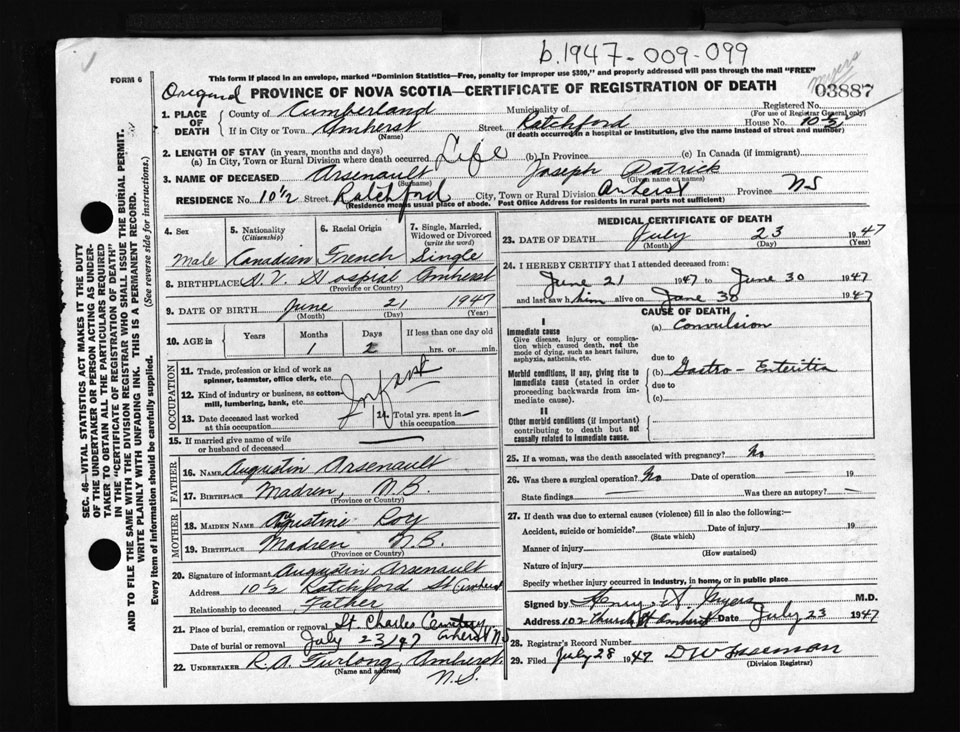 b.1947-009-099
FORM 6
This form if placed in an envelope, marked "Dominion Statistics—Free, penalty for improper use $300," and properly addressed will pass through the mail "FREE"
myers
Original PROVINCE OF NOVA SCOTIA—CERTIFICATE OF REGISTRATION OF DEATH 03887
1. PLACE OF DEATH
County of Cumberland Municipality of Registered No.
(For use of Registrar General only)
If in City or Town Amherst Street Ratchford House No. 10½
(Name) (If death occurred in a hospital or institution, give the name instead of street and number)
2. LENGTH OF STAY (in years, months and days)
(a) In City, Town or Rural Division where death occurred Life (b) In Province (c) In Canada (if immigrant)
3. NAME OF DECEASED Arsenault Joseph Patrick
(Surname) (Given name or names)
RESIDENCE No. 10½ Street Ratchford City, Town or Rural Division Amherst Province NS
(Residence means usual place of abode. Post Office Address for residents in rural parts not sufficient)
4. Sex 5. Nationality (Citizenship) 6. Racial Origin 7. Single, Married, Widowed or Divorced (write the word)
Male Canadian French Single
8. BIRTHPLACE H. V. Hospital Amherst
(Province or Country)
9. DATE OF BIRTH June 21 1947
(Month) (Day) (Year)
10. AGE in Years Months Days If less than one day old
1 2 hrs. or min.
OCCUPATION
11. Trade, profession or kind of work as spinner, teamster, office clerk, etc.
12. Kind of industry or business, as cotton-mill, lumbering, bank, etc.
Infant
13. Date deceased last worked at this occupation 14. Total yrs. spent in this occupation
15. If married give name of wife or husband of deceased
FATHER
16. NAME Augustin Arsenault
17. BIRTHPLACE Madren, N.B.
(Province or Country)
MOTHER
18. MAIDEN NAME Agustine Roy
19. BIRTHPLACE Madren N.B.
(Province or Country)
20. Signature of informant Augustin Arsenault
Address 10½ Ratchford St Amherst
Relationship to deceased Father
21. Place of burial, cremation or removal St Charles Cemetery
Amherst NS
Date of burial or removal July 23/47
22. UNDERTAKER R.A. Furlong, Amherst
(Name and address)
N.S.
MEDICAL CERTIFICATE OF DEATH
23. DATE OF DEATH July 23 1947
(Month) (Day) (Year)
24. I HEREBY CERTIFY that I attended deceased from:
June 21 1947 to June 30 1947
and last saw him alive on June 30 1947
CAUSE OF DEATH
I
Immediate cause (a) Convulsion
Give disease, injury or complication which caused death, not the mode of dying, such as heart failure, asphyxia, asthenia, etc.
due to
Morbid conditions, if any, giving rise to immediate cause (stated in order proceeding backwards from immediate cause).
(b) Gastro-Enteritis
due to
(c)
II
Other morbid conditions (if important) contributing to death but not causally related to immediate cause.
25. If a woman, was the death associated with pregnancy? No
26. Was there a surgical operation? No Date of operation 19
State findings Was there an autopsy?
27. If death was due to external causes (violence) fill in also the following:—
Accident, suicide or homicide? Date of injury 19
(State which)
Manner of injury
(How sustained)
Nature of injury
Specify whether injury occurred in industry, in home, or in public place
Signed by Henry H Myers M.D.
Address 102 Church St Amherst Date July 23 1947
28. Registrar's Record Number
29. Filed July 28 1947 DW Freeman
(Division Registrar)
SEC. 46—VITAL STATISTICS ACT MAKES IT THE DUTY
OF THE UNDERTAKER OR PERSON ACTING AS UNDER-
TAKER TO OBTAIN ALL THE PARTICULARS REQUIRED
IN THE "CERTIFICATE OF REGISTRATION OF DEATH"
AND TO FILE THE SAME WITH THE DIVISION REGISTRAR WHO SHALL ISSUE THE BURIAL PERMIT.
WRITE PLAINLY WITH UNFADING INK. THIS IS A PERMANENT RECORD.
Every item of information should be carefully supplied. (See reverse side for instructions.)